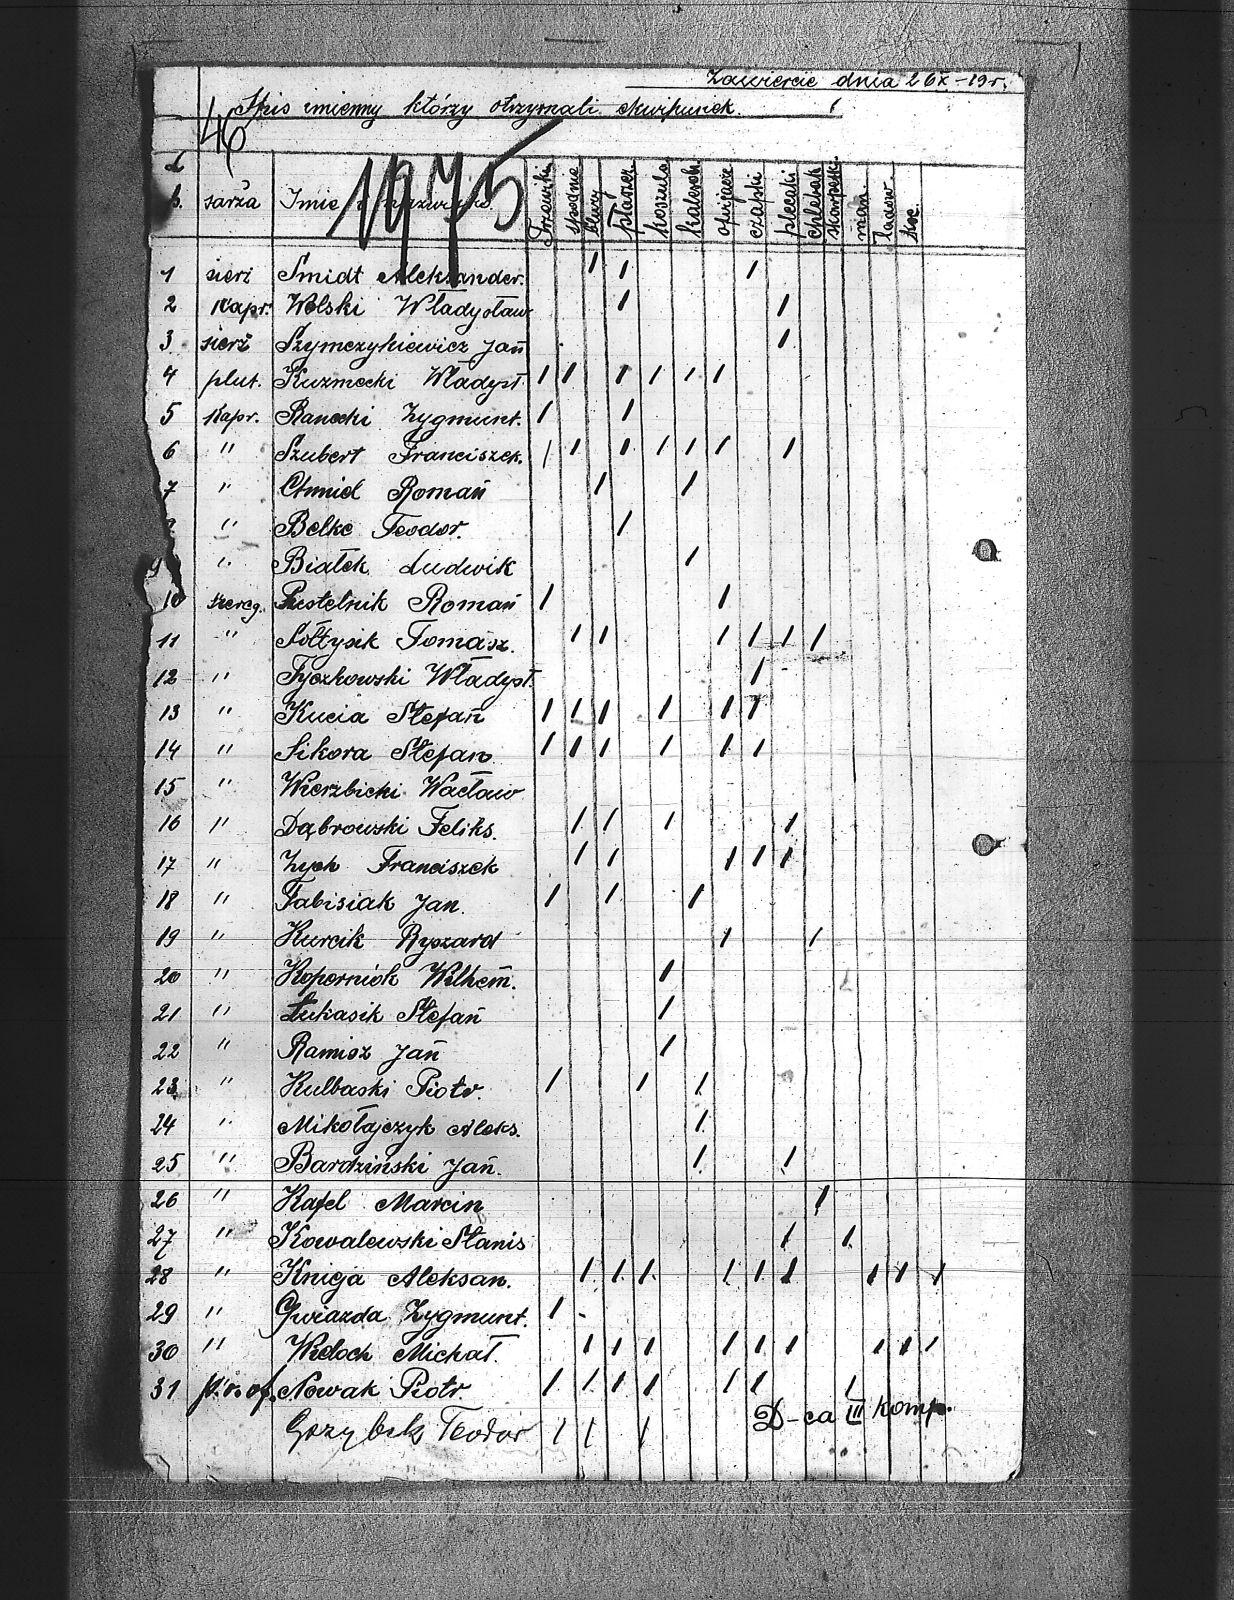 Zawiercie dnia 26 X-19r.
46
Spis imienny którzy otrzymali ekwipunek.
1975
L b. sarża Imię i nazwisko Trzewiki spodnie bluzy płaszcz. koszula kalesoń czapki plecaki chlebak skarpetki man. ładow. koc.
1 sierż Smidt Aleksander. / / /
2 Kapr. Wolski Władysław / /
3 sierż Szymczykiewicz Jań /
4 plut. Kuzmecki Władysł. / / / / / /
5 Kapr. Banecki Zygmunt. / /
6 " Szubert Franciszek. / / / / / / /
7 " Chmiel Romań / /
" Belke Teodor. /
9 " Białek Ludwik /
10 szereg. Pestelnik Romań / /
11 " Sołtysik Tomasz. / / / / / /
12 " Tyczkowski Władysł. /
13 " Kucia Stefań / / / / / /
14 " Sikora Stefan / / / / / /
15 " Wierzbicki Wacław
16 " Dąbrowski Feliks. / / / /
17 " Zych Franciszek / / / / /
18 " Fabisiak Jan. / / /
19 " Kurcik Ryszard / /
20 " Koperniok Wilhem. /
21 " Łukasik Stefań /
22 " Ramisz Jań /
23 " Kulbaski Piotr. / / /
24 " Mikołajczyk Aleks. /
25 " Bardziński Jań. / /
26 " Kafel Marcin /
27 " Kowalewski Stanis / /
28 " Kniga Aleksan. / / / / / / / / /
29 " Gwiazda Zygmunt. /
30 " Weloch Michał. / / / / / / / / /
31 Nowak Piotr. / / / / / / /
Grzybek Teodor / / /
D-ca III komp.